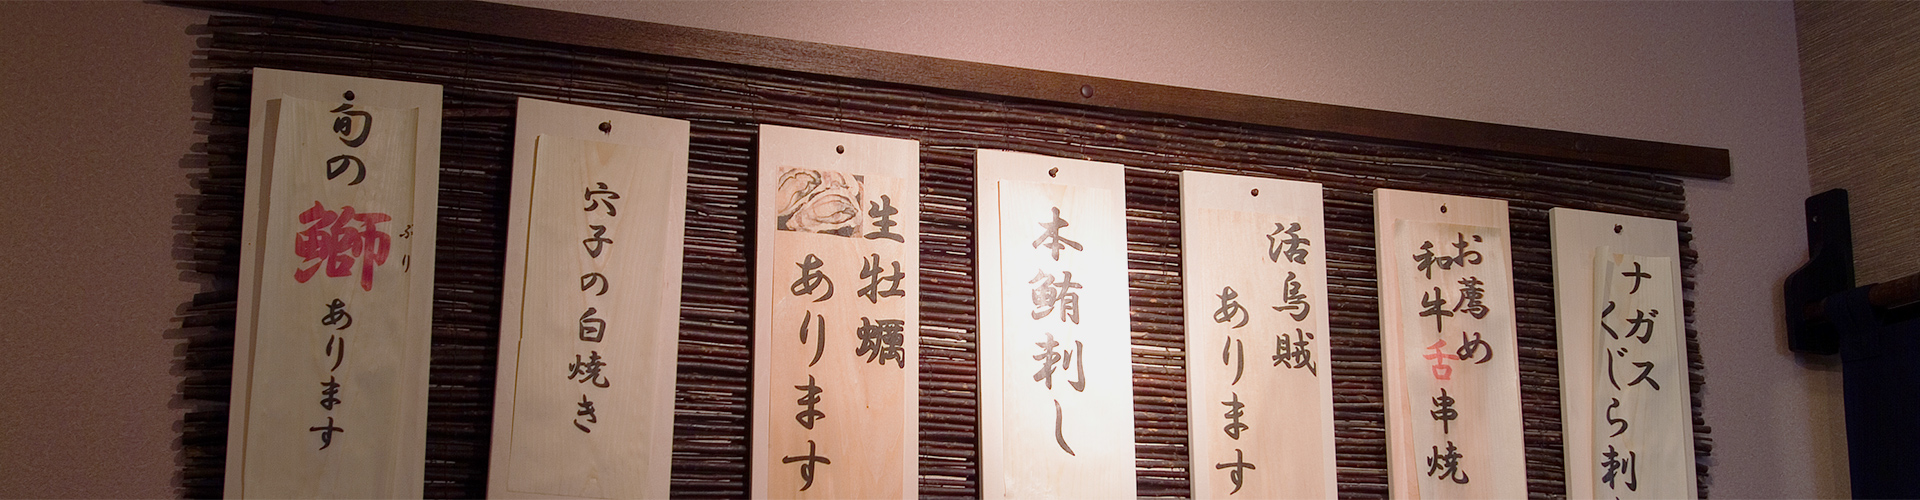 旬の鰤あります
ぶり
穴子の白焼き
生牡蠣
あります
本鮪刺し
活烏賊
あります
お薦め
和牛舌串焼
ナガス
くじら刺